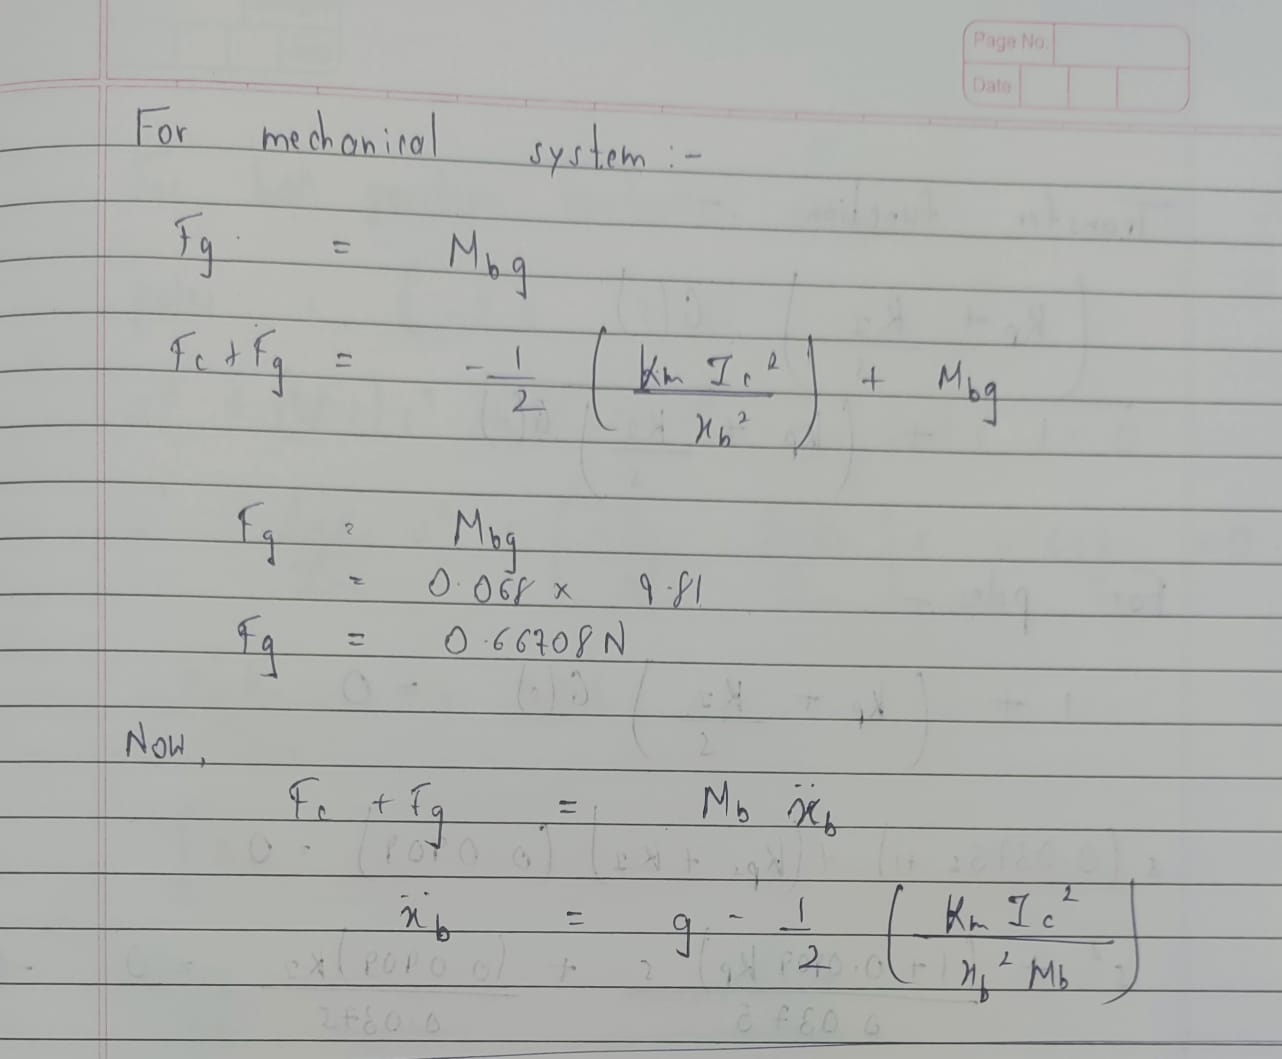 Page No.
Date
For mechanical system :-
Fg = Mbg
Fc + Fg = -1/2 (Km Ic² / xb²) + Mbg
Fg = Mbg
= 0.068 x 9.81
Fg = 0.66708 N
Now,
Fc + Fg = Mb ẍb
ẍb = g - 1/2 (Km Ic² / xb² Mb)